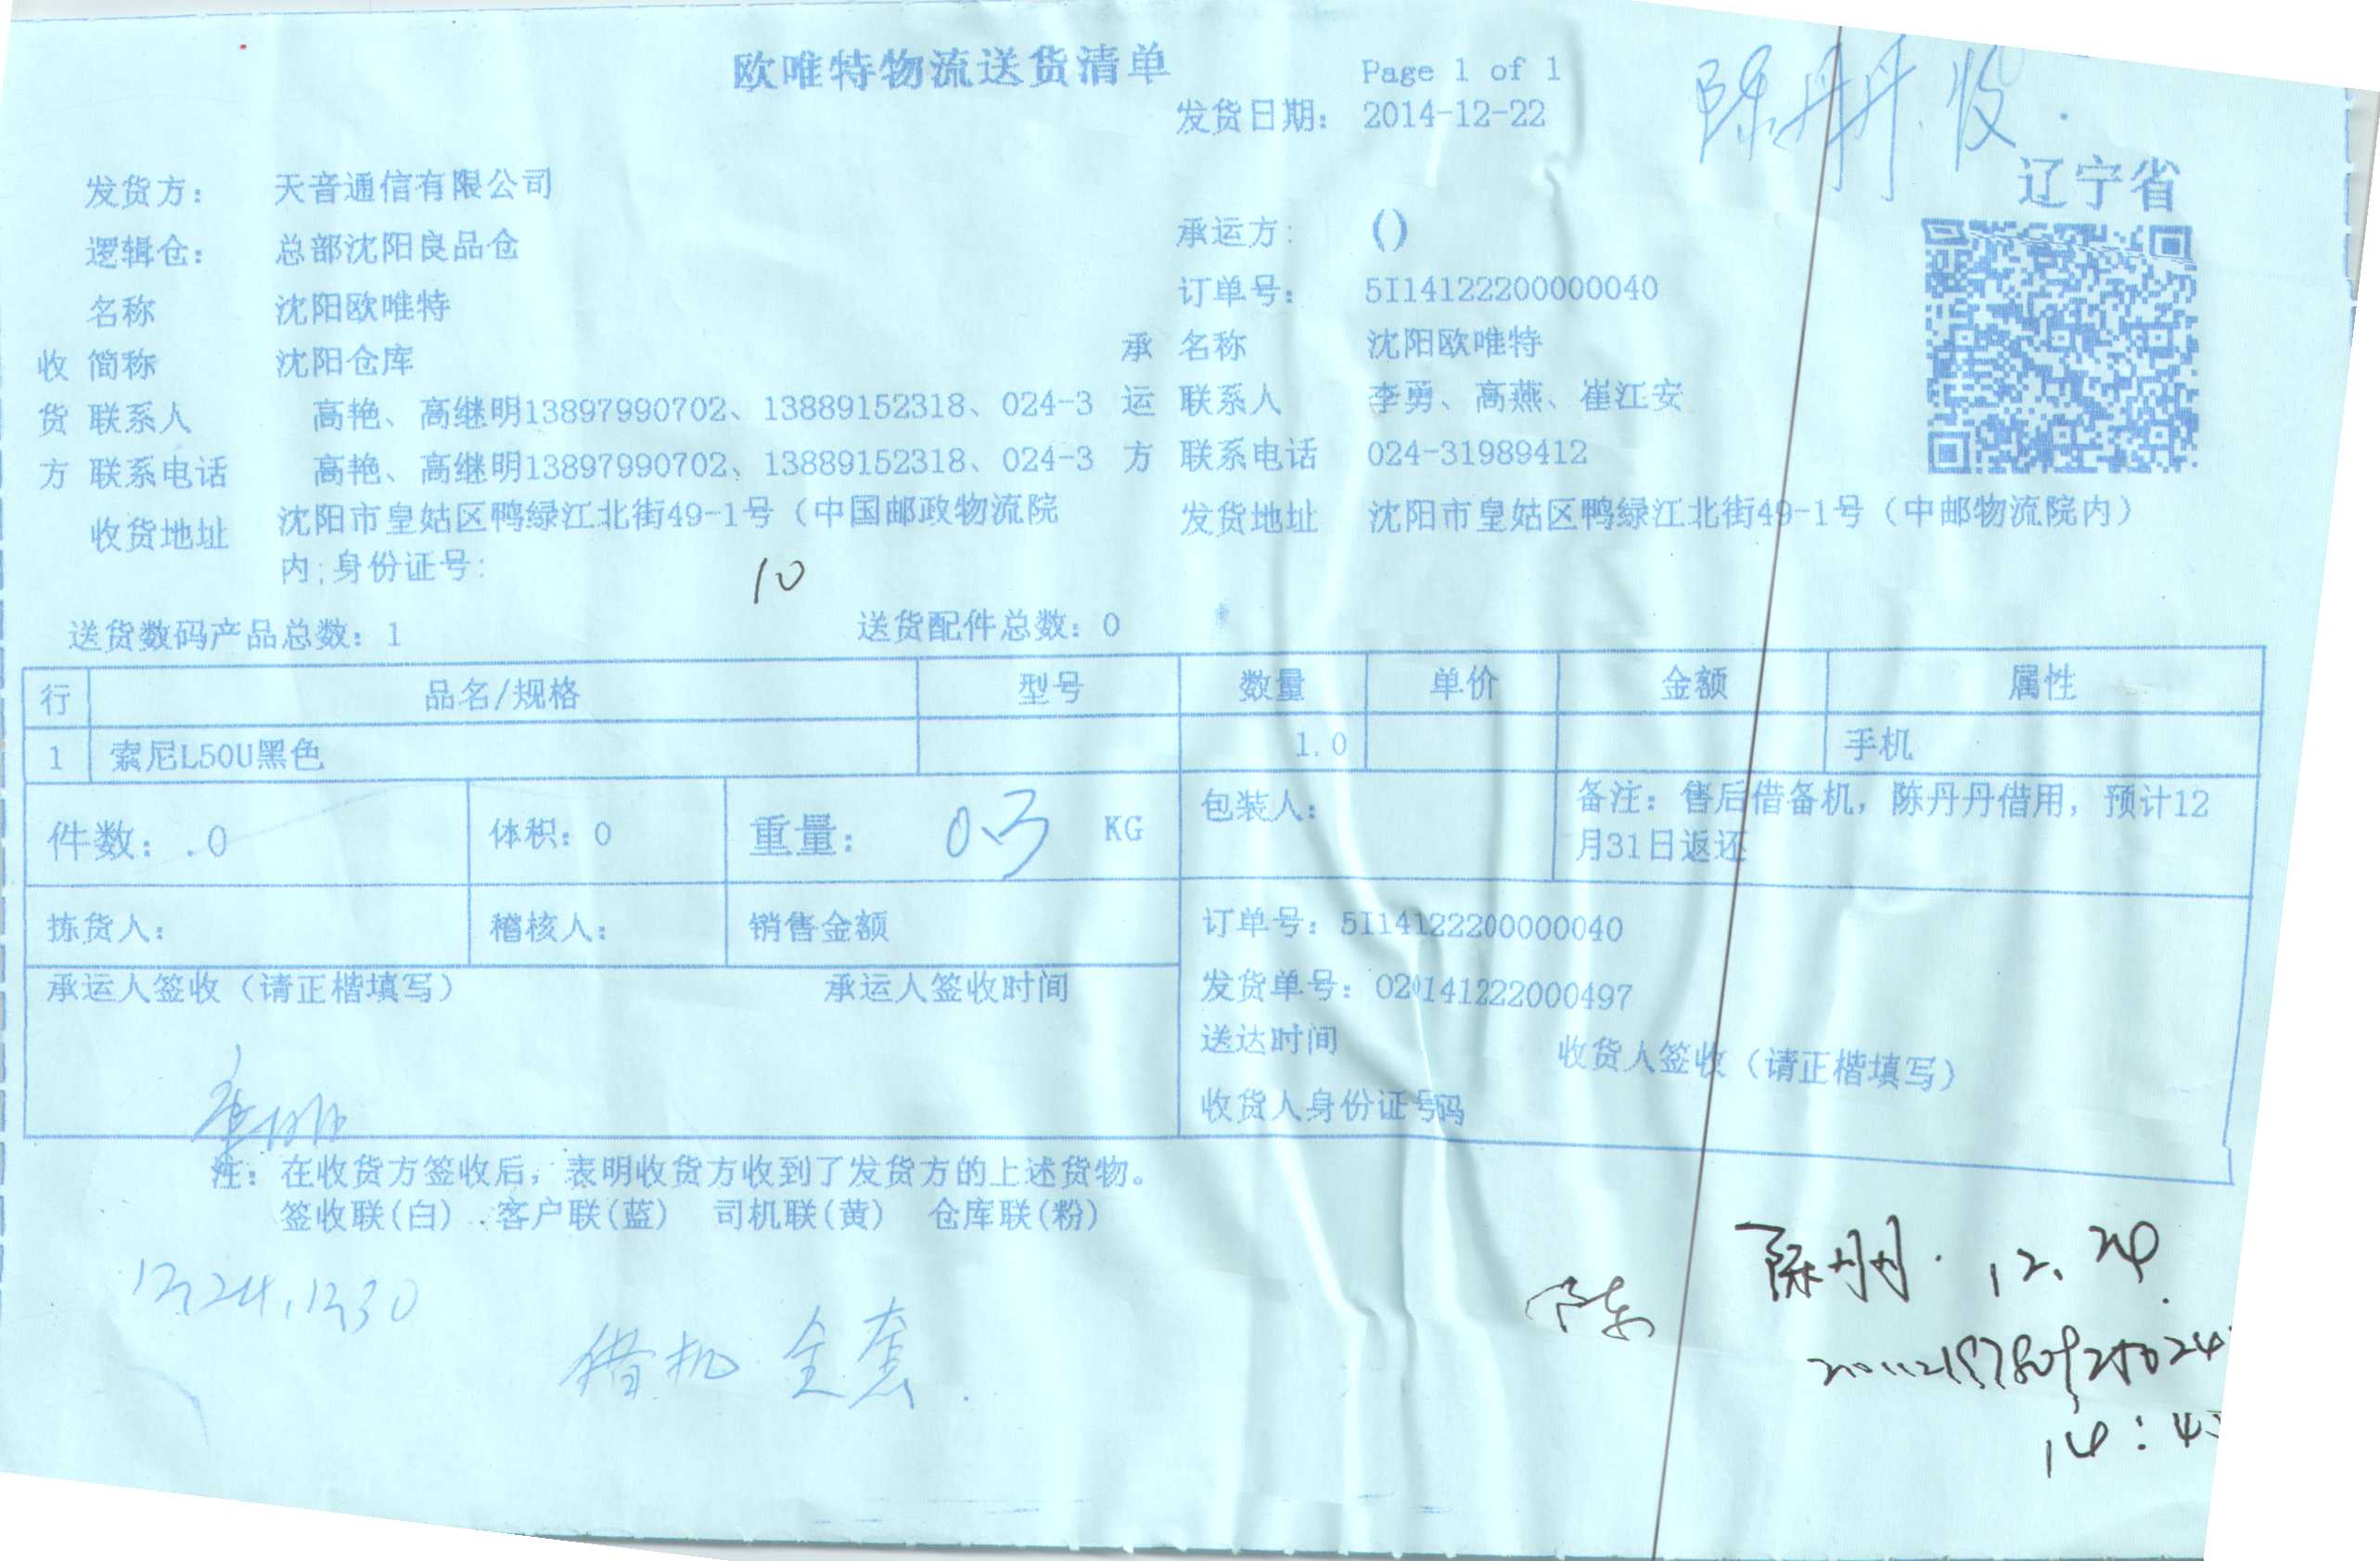 欧唯特物流送货清单
Page 1 of 1
发货日期: 2014-12-22
陈丹丹 收.
辽宁省
发货方: 天音通信有限公司
承运方: ()
逻辑仓: 总部沈阳良品仓
订单号: 5I14122200000040
名称 沈阳欧唯特
承 名称 沈阳欧唯特
收 简称 沈阳仓库
运 联系人 李勇、高燕、崔江安
货 联系人 高艳、高继明13897990702、13889152318、024-3
方 联系电话 024-31989412
方 联系电话 高艳、高继明13897990702、13889152318、024-3
发货地址 沈阳市皇姑区鸭绿江北街49-1号（中邮物流院内）
收货地址 沈阳市皇姑区鸭绿江北街49-1号（中国邮政物流院
内;身份证号:
10
送货数码产品总数: 1 送货配件总数: 0
行 品名/规格 型号 数量 单价 金额 属性
1 索尼L50U黑色 1.0 手机
件数: .0 体积: 0 重量: 0.3 KG 包装人: 备注: 售后借备机, 陈丹丹借用, 预计12
月31日返还
拣货人: 稽核人: 销售金额 订单号: 5I14122200000040
承运人签收（请正楷填写） 承运人签收时间 发货单号: 020141222000497
送达时间 收货人签收（请正楷填写）
收货人身份证号码
注: 在收货方签收后, 表明收货方收到了发货方的上述货物。
签收联(白) 客户联(蓝) 司机联(黄) 仓库联(粉)
陈丹丹. 12.24.
12.24.12.30
借机 全套.